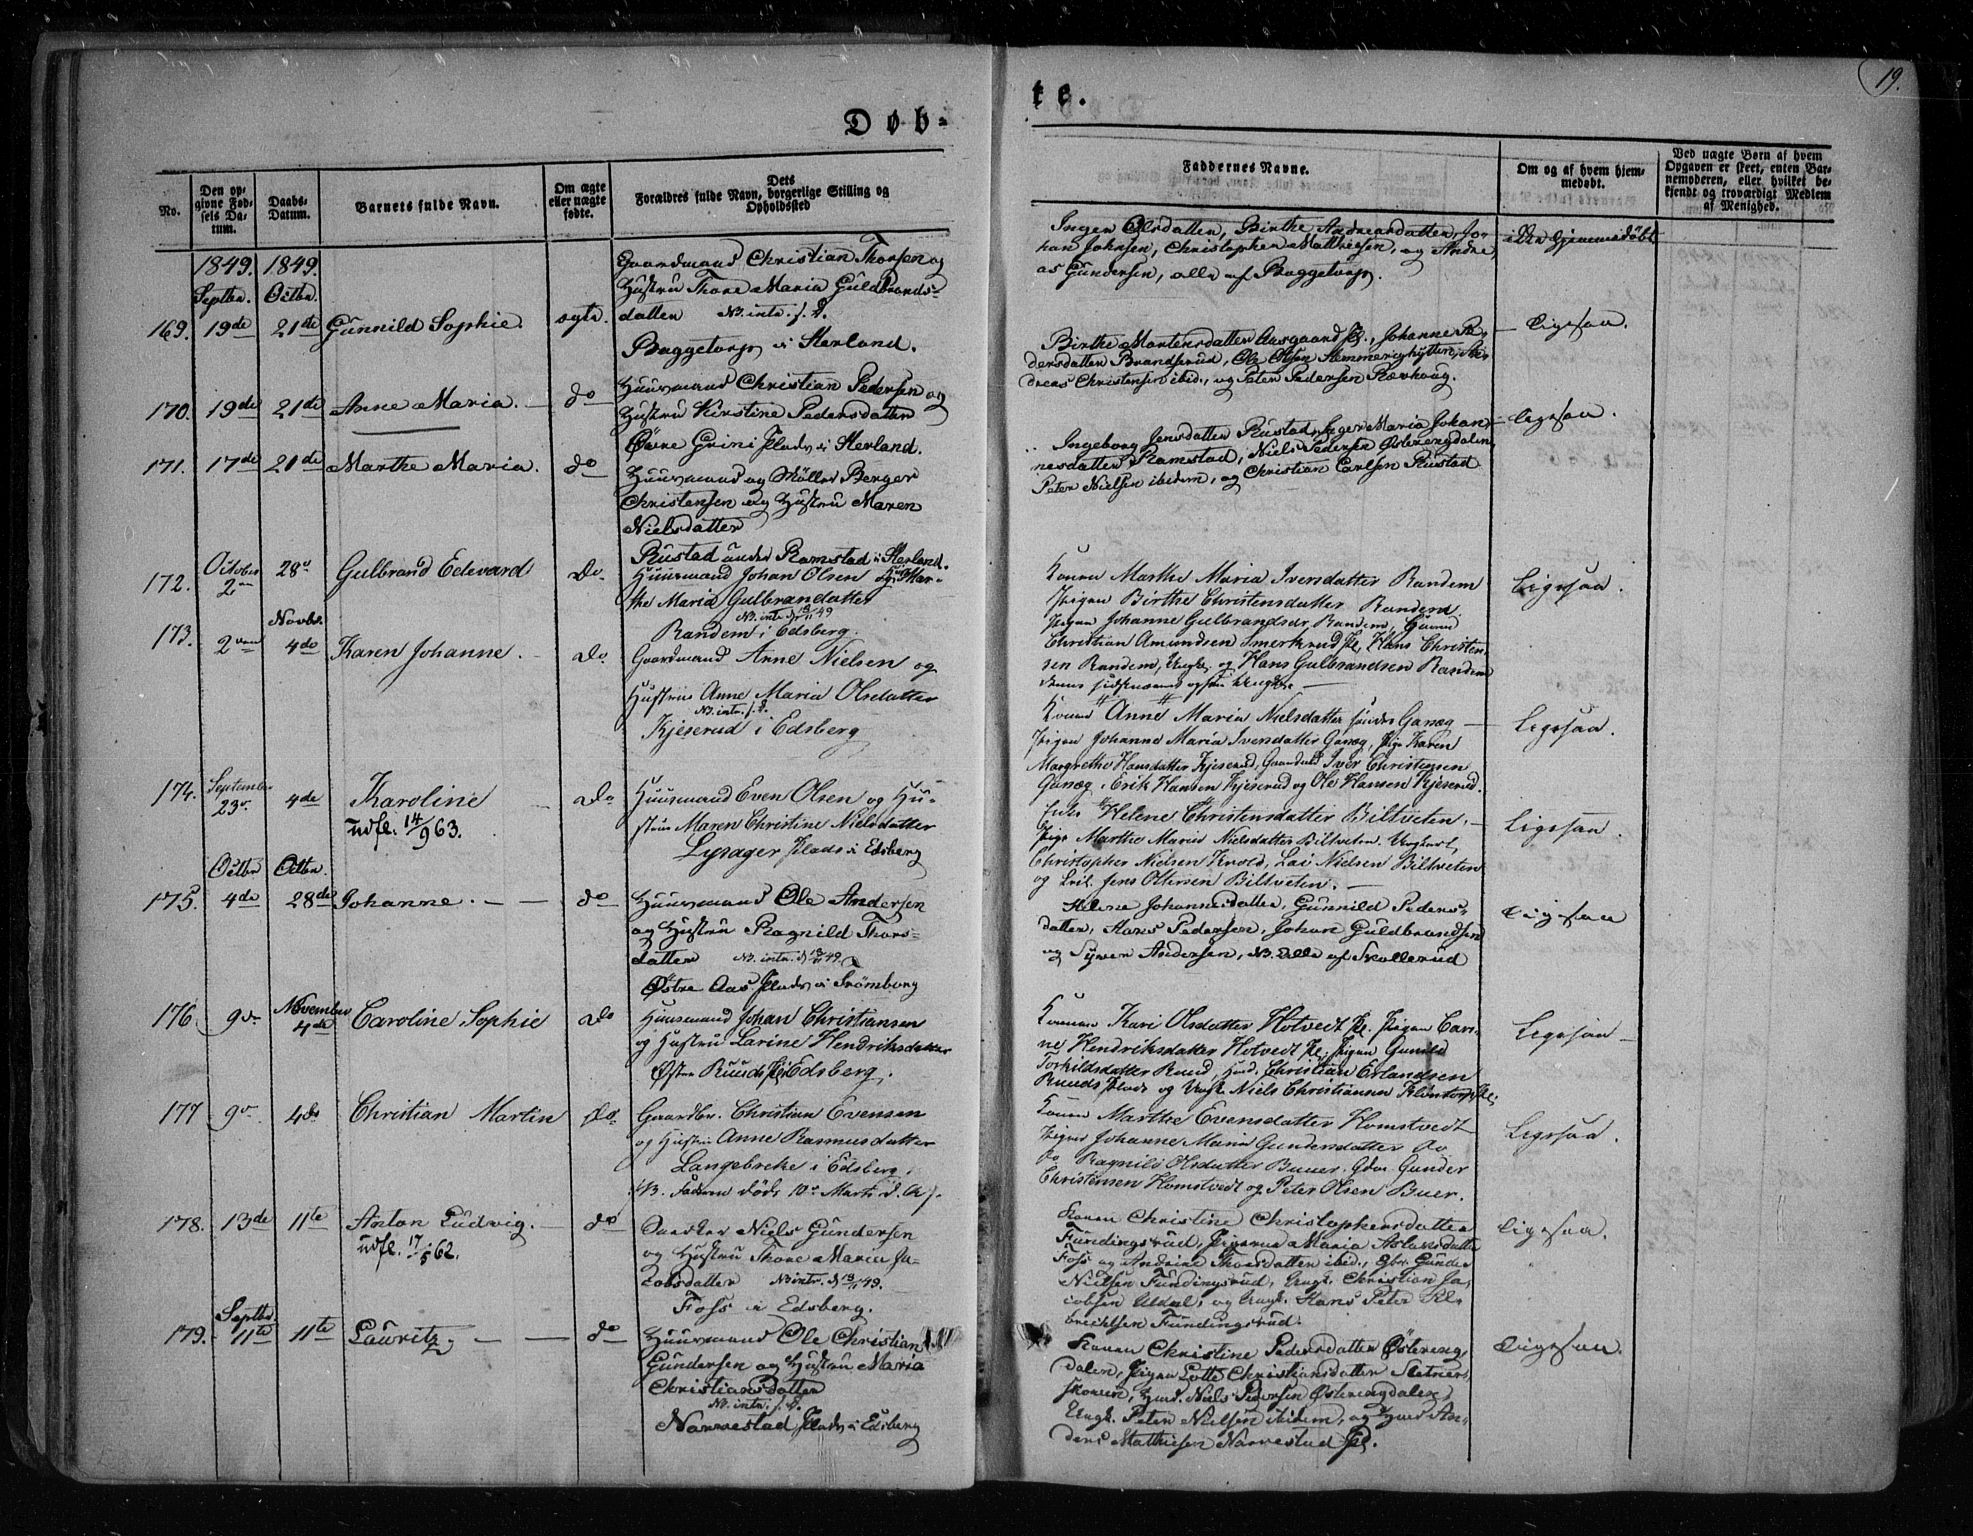 19.
Døb-
te.
No.
Den op-
givne Fød-
sels Da-
tum.
Daabs-
Datum.
Barnets fulde Navn.
Om ægte
eller uægte
fødte.
Dets
Forældres fulde Navn, borgerlige Stilling og
Opholdssted
Faddernes Navne.
Om og af hvem hjem-
medøbt.
Ved uægte Børn af hvem
Opgaven er skeet, enten Bar-
nemoderen, eller hvilket be-
kjendt og troværdigt Medlem
af Menighed.
1849. 1849.
Septbr. Octbr.
169. 19de 21de Gunnild Sophie. ægte.
Gaardmand Christian Thorsen og
Hustru Thore Maria Guldbrands-
datter NB. intr. s. D.
Baggetorp i Herland.
Inger Olsdatter, Birthe Andreasdatter, Jo-
han Johnsen, Christopher Matthiesen, og Andre
as Gundersen, alle af Baggetorp.
ikke hjemmedøbt
170. 19de 21de Anne Maria. do
Huusmand Christian Pedersen og
Hustru Kirstine Pedersdatter
Øvre Grini Plads i Herland.
Birthe Mortensdatter Aasgaard Pl., Johanne Pe-
dersdatter Brandserud, Ole Olsen Hemmerighytten, An-
dreas Christensen ibid., og Peter Pedersen Rævhaug.
Ligesaa.
171. 17de 21de Marthe Maria. do
Huusmand og Møller Berger
Christensen og Hustru Maren
Nielsdatter
Rustad under Ramstad i Herland.
Ingeborg Jensdatter Rustad, Inger Maria Johan-
nesdatter Ramstad, Niels Pedersen Østerengdalen,
Peter Nielsen ibidem, og Christian Carlsen Rustad
Ligesaa
172. October 2 28 Gulbrand Edevard Do.
Huusmand Johan Olsen Hu Mar-
the Maria Gulbrandatter
NB. intr. d 18/11 49
Randem i Edsberg.
Konen Marthe Maria Iversdatter Randem
Pigen Birthe Christensdatter Randem
Pigen Johanne Gulbrandsdr. Randem,
Christian Amundsen Smerkrud Pl, Hans Christen-
sen Randem, Ungk. og Hans Gulbrandsen Randem
Ligesaa.
Novbr.
173. 2 4de Karen Johanne. Do.
Gaardmand Arne Nielsen og
Hustru Anne Maria Olsdatter
NB. intr. s. D.
Kjeserud i Edsberg
Konen Anne Maria Nielsdatter søndre Ganæg
Pigen Johanne Maria Iversdatter Ganæg, Pige Karen
Margrethe Hansdatter Kjeserud, Gaardm. Iver Christensen
Ganæg, Erik Hansen Kjeserud og Ole Hansen Kjeserud.
Ligesaa.
174. September 23. 4de Karoline Do
udfl. 14/9 63.
Huusmand Even Olsen og Hu-
stru Maren Christine Nielsdatter
Lysager Plads i Edsberg
Enke Helene Christensdatter Biltveten.
Pige Marthe Maria Nielsdatter Biltveten. Ungkarl
Christopher Nielsen Knold, Lai Nielsen Biltveten
og Jens Ottersen Biltveten.
Ligesaa.
Octbr Octbr.
175. 4de 28de Johanne. do
Huusmand Ole Andersen
og Hustru Ragnild Thors-
datter NB. intr. d 18/11 49.
Østre Aas Plads i Trømborg
Helene Johannesdatter, Gunnild Peders-
datter, Hans Pedersen, Johan Guldbrandsen
og Syver Andersen, NB. Alle af Skollerud
Ligesaa
176. 9 November 4de Caroline Sophie Do
Huusmand Johan Christiansen
og Hustru Larine Hendriksdatter
Østre Ruuds Pl i Edsberg.
Konen Kari Olsdatter Hotvedt Pl. Pigen Cari-
ne Hendriksdatter Hotvedt Pl; Pigen Gunild
Torkildsdatter Ruud, Christian Erlandsen
Ruuds Plads og Ungk. Niels Christiansen Klöntorp Pl;
Ligesaa
177 9 4de Christian Martin Do.
Gaardbr. Christian Evensen
og Hustru Anne Rasmusdatter
Langebrekke i Edsberg.
NB. Faderen døde 10 Marts d. A.
Konen Marthe Evensdatter Homstvedt
Pigen Johanne Maria Gundersdatter do
do Ragnild Olsdatter Buuer. Gunder
Christensen Homstvedt og Peter Olsen Buer.
Ligesaa.
178. 13de 11te Anton Ludvig. do
udfl. 17/5 62.
Niels Gundersen
og Hustru Thore Maria Ja-
cobsdatter NB intr. d 18/11 49.
Foss i Edsberg.
Konen Christine Christophersdatter
Fundingsrud, Pigerne Maria Aslaksdatter
Foss og Andrine Thorsdatter ibid., Gbr. Gunder
Nielsen Fundingsrud, Ungk. Christian Ja-
cobsen Udal, og Ungk. Hans Peter El-
brecktsen Fundingsrud.
Ligesaa.
Septbr
179. 11te 11te Lauritz. do
Huusmand Ole Christian
Gundersen og Hustru Maria
Christiansdatter
NB. intr. s. D.
Narvestad Plads i Edsberg
Konen Christine Pedersdatter Østereng-
dalen, Pigen Lotte Christiansdatter Sletner-
skoven, Huusm. Niels Pedersen Østerengdalen,
Ungk. Peter Nielsen ibidem, og Huusm An-
ders Matthiesen Narvestad Pl.
Ligesaa.